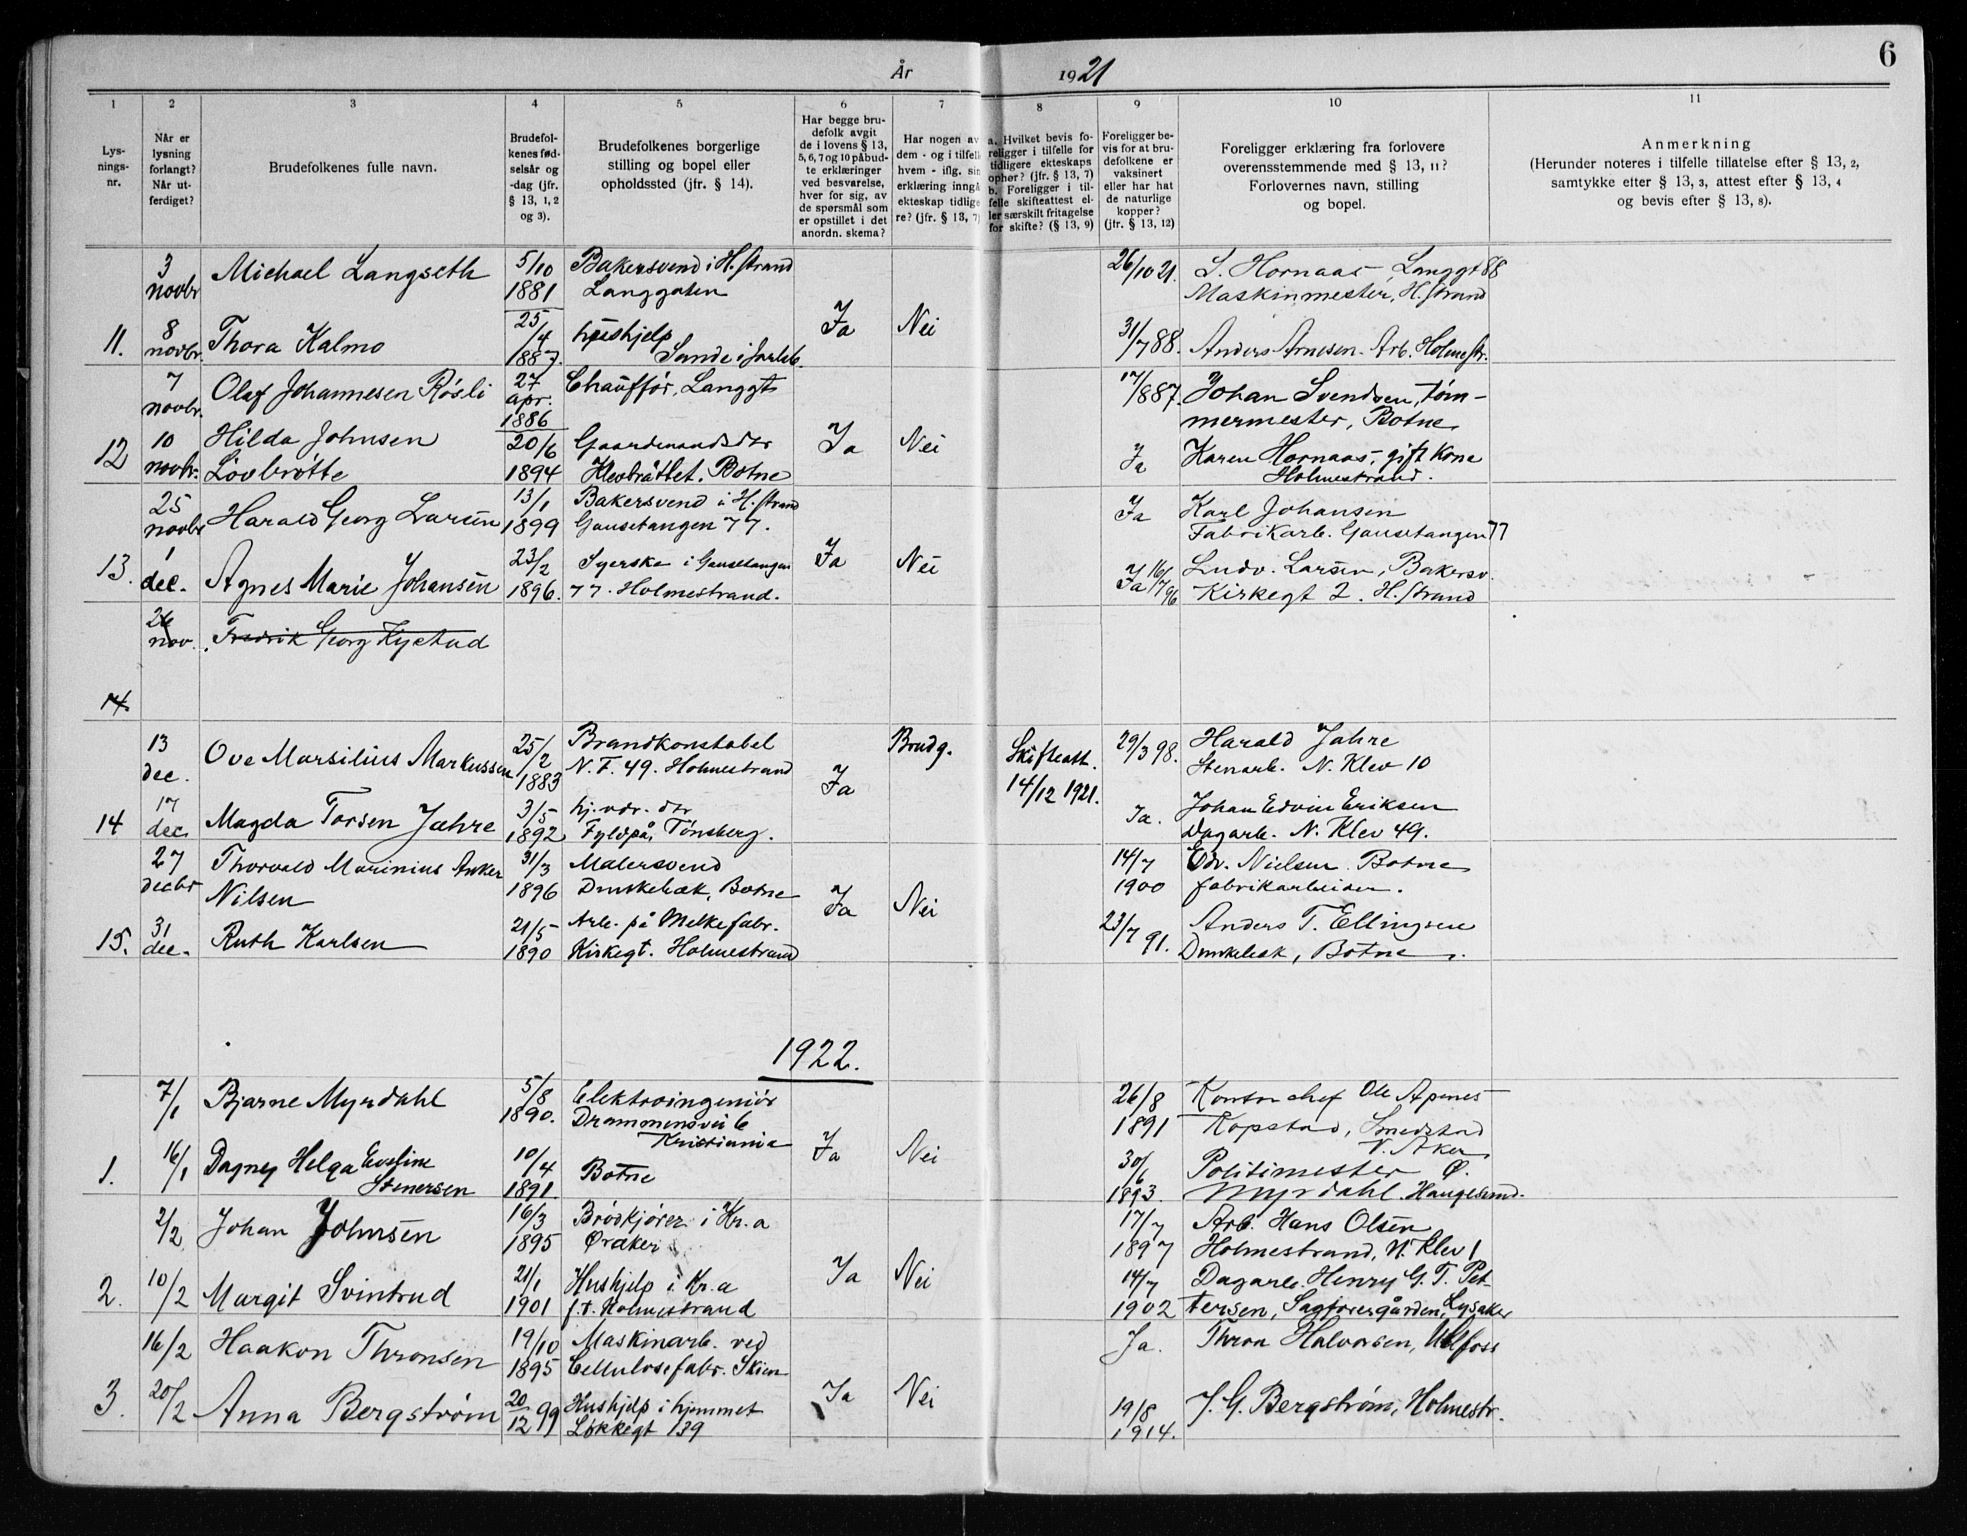 År 1921
6
1 2 3 4 5 6 7 8 9 10 11
Lys-
nings-
nr.
Når er
lysning
forlangt?
Når ut-
ferdiget?
Brudefolkenes fulle navn.
Brudefol-
kenes fød-
selsår og
-dag (jfr.
§ 13, 1, 2
og 3).
Brudefolkenes borgerlige
stilling og bopel eller
opholdssted (jfr. § 14).
Har begge bru-
defolk avgit
de i lovens § 13,
5, 6, 7 og 10 påbud-
te erklæringer
ved besvarelse,
hver for sig, av
de spørsmål som
er opstillet i det
anordn. skema?
Har nogen av
dem - og i tilfelle
hvem - iflg. sin
erklæring inngå
ekteskap tidlige
re? (jfr. § 13, 7)
a. Hvilket bevis fo-
religger i tilfelle for
tidligere ekteskaps
ophør? (jfr. § 13, 7)
b. Foreligger i til-
felle skifteattest el-
ler særskilt fritagelse
for skifte? (§ 13, 9)
Foreligger be-
vis for at bru-
defolkene er
vaksinert
eller har hat
de naturlige
kopper?
(jfr. § 13, 12)
Foreligger erklæring fra forlovere
overensstemmende med § 13, 11?
Forlovernes navn, stilling
og bopel.
Anmerkning
(Herunder noteres i tilfelle tillatelse efter § 13, 2,
samtykke efter § 13, 3, attest efter § 13, 4
og bevis efter § 13, 8).
3 novbr Michael Langseth 5/10 1881 Bakersvend i H.strand
Langgaten
26/10 21. S. Hornaas Langgt 88
Maskinmester, H.strand
11. 8 novbr. Thora Kalmo 25/4 1887. hushjelp
Sande i Jarlsb.
Ja Nei 31/7 88. Anders Arnesen. Arb. Holmestr.
7 novbr. Olaf Johannesen Røsli 27 apr. 1886 Chauffør, Langgt
17/8 87. Johan Svendsen, tøm-
mermester, Botne
12 10 novbr. Hilda Johnsen
Lövbrøtte
20/6 1894 Gaardmandsdtr
Klevbråttet. Botne
Ja Nei Ja Karen Hornaas, gift kone
Holmestrand.
25 novbr Harald Georg Larsen 13/1 1899 Bakersvend i H.strand
Gausetangen 77.
Ja Karl Johansen
Fabrikarb. Gausetangen 77
13. 1 dec. Agnes Marie Johansen 23/2 1896. Syerske i Gausetangen
77. Holmestrand.
Ja Nei Ja 16/7 96 Ludv. Larsen, Bakersv.
Kirkegt 2. H.strand
26 nov. Fredrik Georg Kystad
14.
13 dec. Ove Marsilius Markussen 25/2 1883 Brandkonstabel
N. F. 49. Holmestrand
Brudg. Skifteatt.
14/12 1921.
29/3 98. Harald Jahre
Stenarb. N. Klev 10
14 17 dec. Magda Torsen Jæhre 3/5 1892 hj.vær. dtr
Fyldpå, Tönsberg.
Ja Ja. Johan Edvin Eriksen
Dagarb. N. Klev 49.
27 decbr Thorvald Marinius Anker
Nilsen
31/3 1896 Malersvend
Dunkebæk, Botne
14/7 1900 Edv. Nielsen Botne
fabrikarbeider.
15. 31 dec. Ruth Karlsen 21/5 1890 Arb. på Melkefabr.
Kirkegt. Holmestrand
Ja Nei 23/7 91. Anders T. Ellingsen
Dunkebæk, Botne.
1922.
7/1 Bjarne Myrdahl 5/8 1890. Elektroingeniör
Drammensvei 6
Kristiania
26/8 1891 Kontorchef Ole Apenes
Kopstad, Smedstad
V. Aker
1. 16/1 Dagney Helga Eveline
Stenersen
10/4 1891. Botne
Ja Nei 30/6 1893. Politimester Ø.
Myrdahl. Haugesund.
2/2 Johan Johnsen 16/3 1895 Brödkjörer i Kr.a
Øraker
17/7 1897 Arb. Hans Olsen
Holmestrand, N. Klev 1
2. 10/2 Margit Svintrud 21/1 1901 Hushjelp i Kr.a
f.t. Holmestrand
Ja Nei 14/7 1902 Dagarb. Henry G. T. Pet-
tersen, Sagförergården, Lysaker
16/2 Haakon Thronsen 19/10 1895 Maskinarb. ved
Cellulosefabr. Skien
Ja. Thron Halvorsen, Ulefoss
3. 20/2 Anna Bergström 20/12 99 Hushjelp i hjemmet
Løkkegt 139
Ja Nei 19/8 1914. J. G. Bergström, Holmestr.